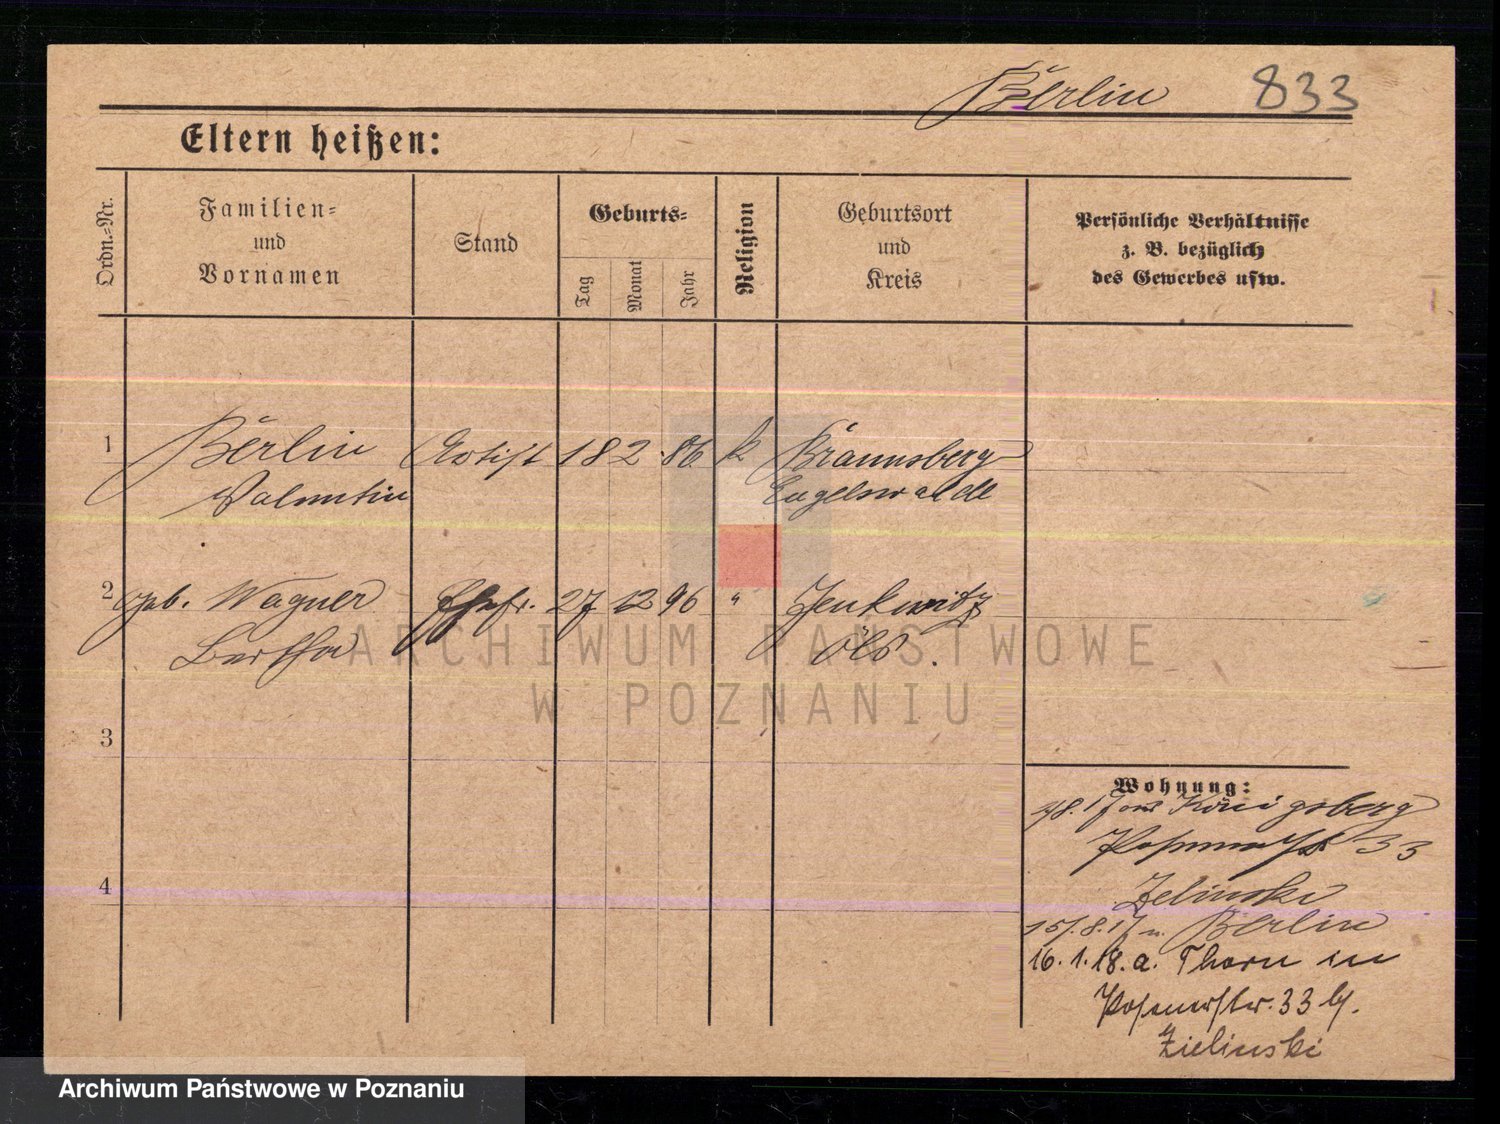 Berlin 833
Eltern heißen:
Ordn.-Nr.
Familien-
und
Vornamen
Stand
Geburts-
Tag
Monat
Jahr
Religion
Geburtsort
und
Kreis
Persönliche Verhältnisse
z. B. bezüglich
des Gewerbes usw.
1 Berlin Artist 18 2 86 k Braunsberg
Valentin Engelswalde
2 geb. Wagner Ehefr. 27 12 96 " Jenkwitz
Bertha Öls.
3
4
Wohnung:
8.17 Königsberg
33
Zelinski
15/.8.17 n. Berlin
16.1.18. a. Thorn in
Posenerstr. 33 b/.
Zielinski
ARCHIWUM PAŃSTWOWE
W POZNANIU
Archiwum Państwowe w Poznaniu